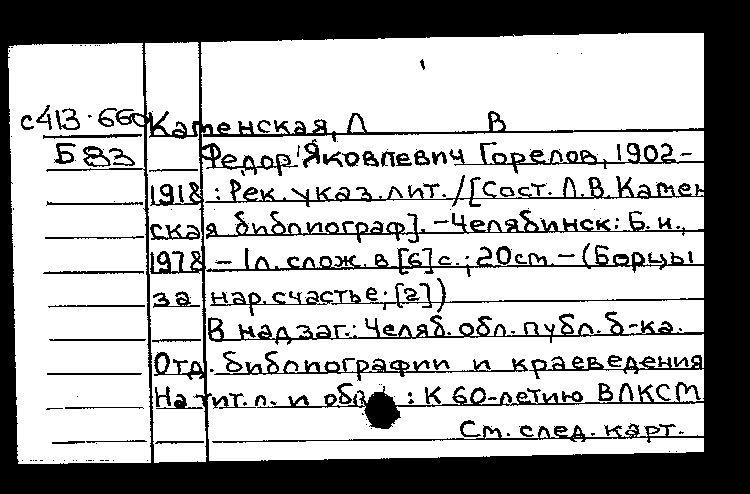 с413·660 Каменская, Л В
Б 83 Федор Яковлевич Горелов, 1902-
1918 : Рек. указ. лит. / [Сост. Л.В. Камен
ская библиограф]. - Челябинск: Б.и.,
1978 - 1л. слож. в [6] с.; 20 см. - (Борцы
за нар. счастье; [2])
В надзаг.: Челяб. обл. публ. б-ка.
Отд. библиографии и краеведения
На тит. л. и обл.: К 60-летию ВЛКСМ
См. след. карт.